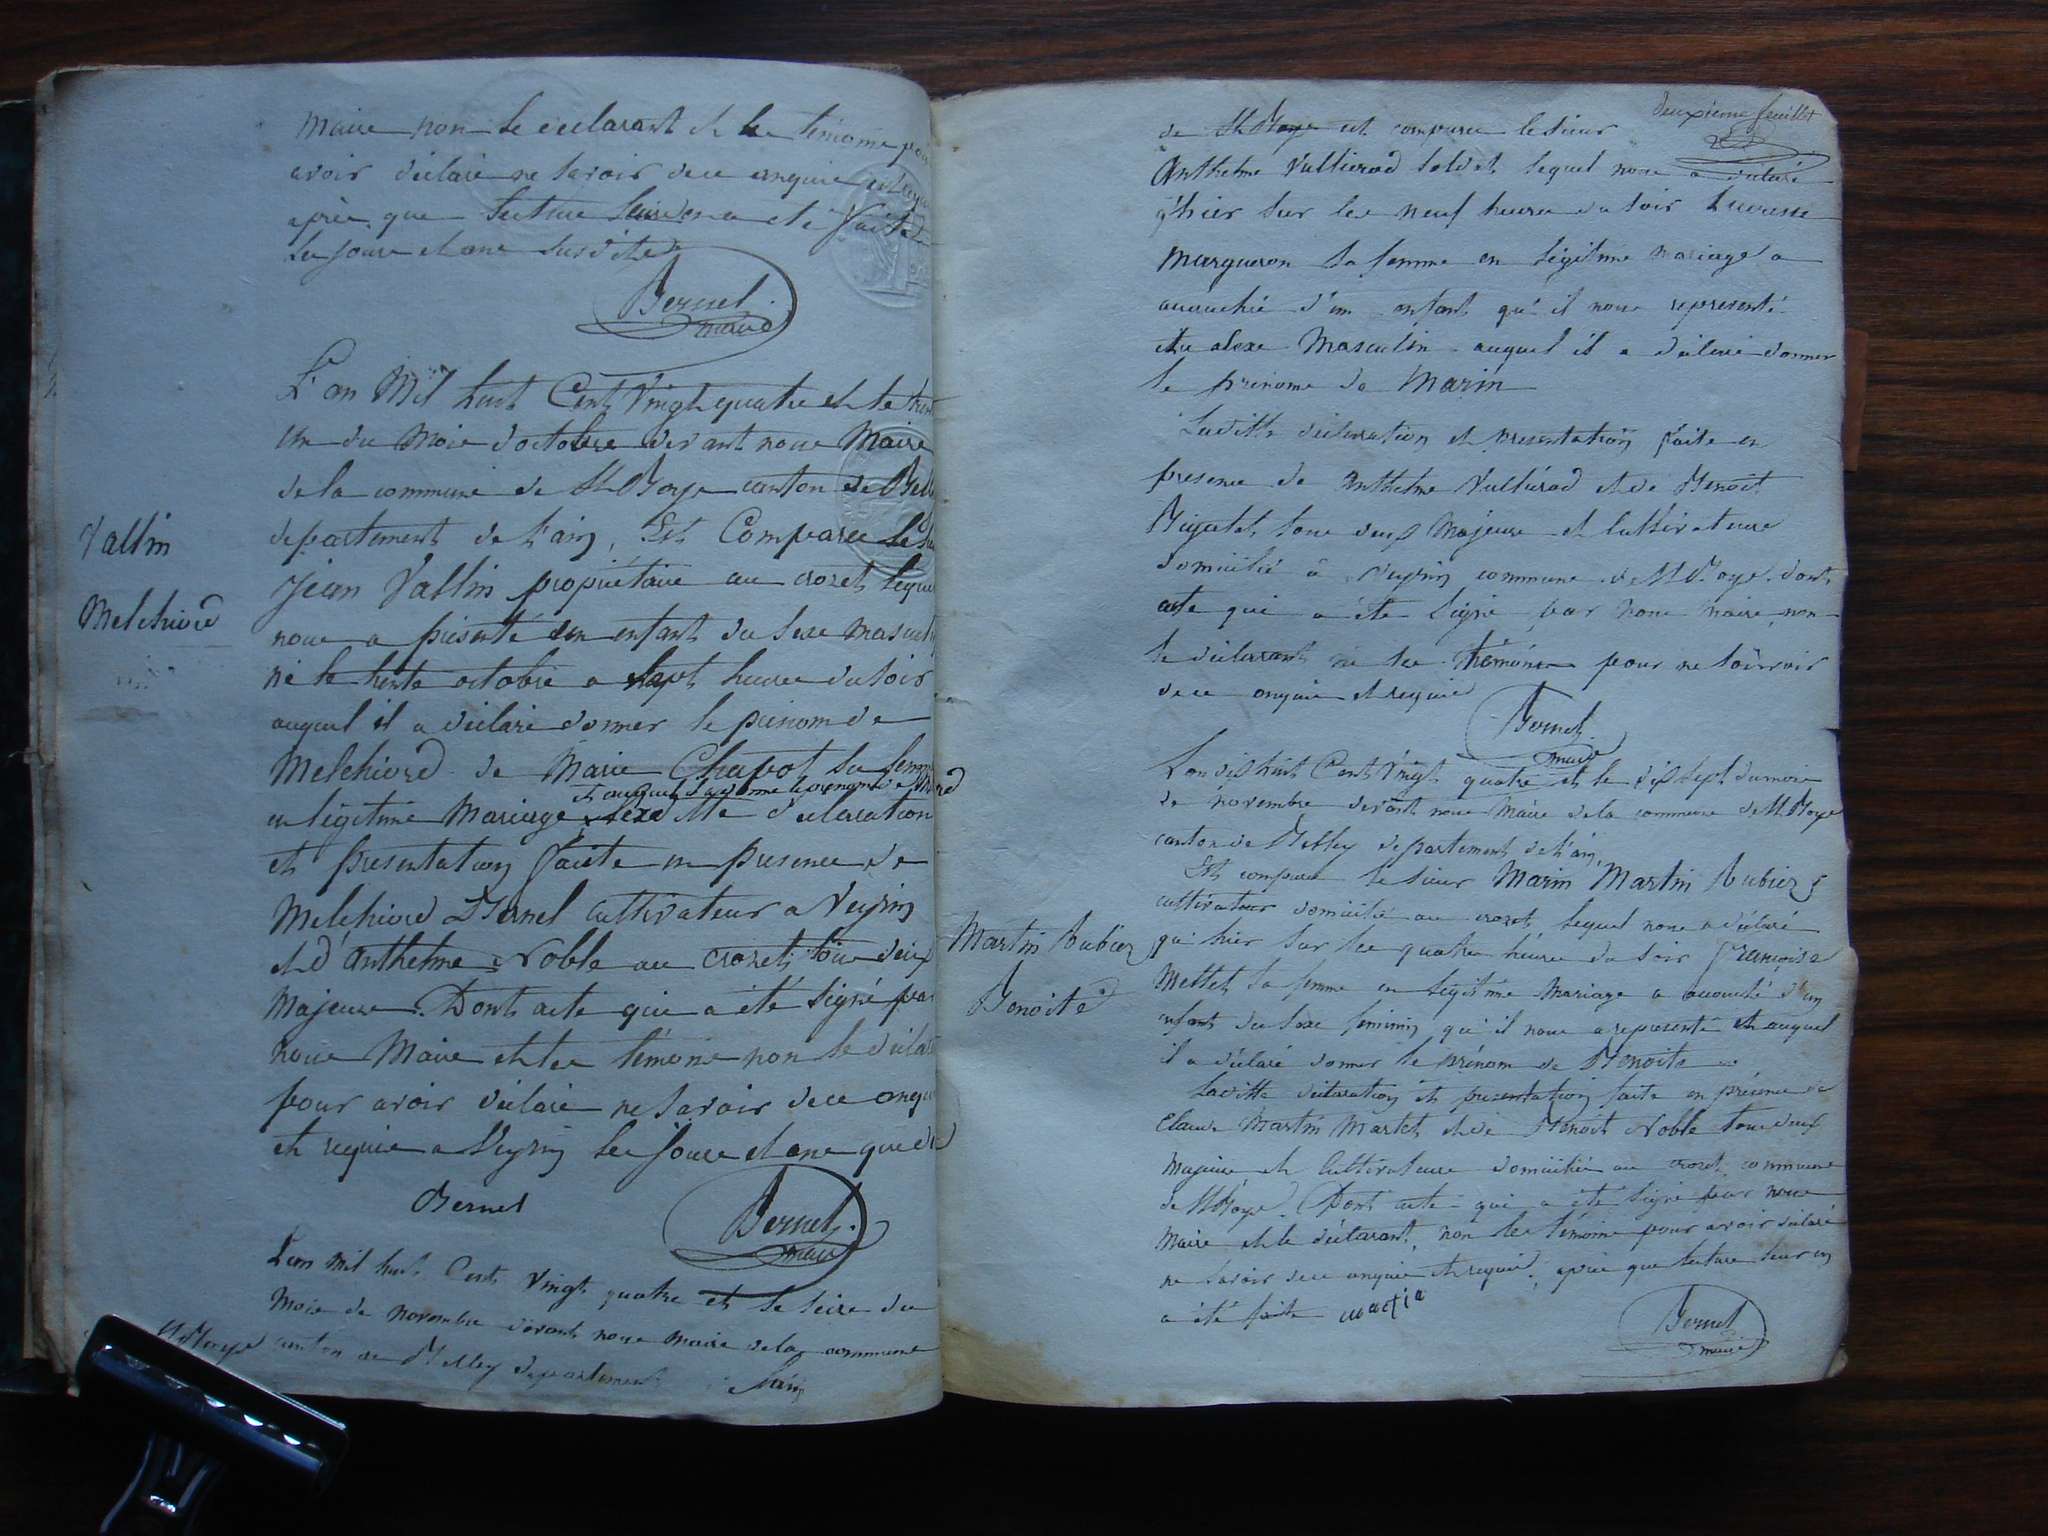 maire non le déclarant et le témoins pour
avoir déclaré ne savoir de ce enquire et requi
après que lecture leur en a été faite
les jours et ans susdite
Bernel
maire
Vallin
Melchiord
L'an Mil huit Cent Vingt quatre et le trente
un du mois d'octobre devant nous Maire
de la commune de St Boye canton de Bell
departement de l'ain, Est Comparu le Sieur
Jean Vallin propriétaire au crozet lequel
nous a présenté un enfant du sexe masculin
né le trente octobre a Sept heures du soir
auquel il a déclaré donner le prénom de
Melchiord de Marie Chapot sa femme
et auquel il a donné le prénom de
en légitime Mariage laditte déclaration
et presentation faite en presence de
Melchiord Bernel cultivateur a Veyrin
et d'anthelme Noble au crozet tous deux
Majeurs. Dont acte qui a été signé par
nous Maire et les témoins non le déclarant
pour avoir déclaré ne savoir de ce enquis
et requis a Veyrin les jours et ans que dessus
Bernel
Bernel
maire
L'an mil huit Cent Vingt quatre et le seize du
Mois de novembre devant nous maire de la commune
St Boye canton de Belley departement de l'ain
deuxième feuillet
de St Boye est comparu le sieur
Anthelme Vullierod soldat lequel nous a déclaré
q'hier sur les neuf heures du soir Lucresse
Margueron sa femme en légitime mariage a
accouchée d'un enfant qu'il nous representé
etre du sexe Masculin auquel il a déclaré donner
le prénoms de Marin
Laditte déclaration et presentation faite en
presence de Anthelme Vullierod et de Benoit
tous deux Majeurs et Cultivateurs
domicilié à Veyrin commune de St Boye. dont
acte qui a été Signé par nous maire, non
le déclarant ni les témoins pour ne sçavoir
de ce enquis et requis
Bernel
maire
L'an dix huit Cent Vingt quatre et le dix sept du mois
de novembre devant nous Maire de la commune de St Boye
canton de Belley departement de l'ain,
Est comparu le sieur Marin Martin Rubiez
cultivateur domicilié au crozet, lequel nous a déclaré
Martin Rubiez
Benoite
qu'hier sur les quatre heures du soir françoise
Mettet sa femme en légitime Mariage a accouché d'un
enfant du Sexe feminin, qu'il nous a representé et auquel
il a déclaré donner le prénom de Benoite
Laditte déclaration et presentation faite en présence de
Claude Martin Martet et de Benoit Noble tous deux
Majeurs et Cultivateurs domiciliés au crozet commune
de St Boye. Dont acte qui a été Signé par nous
Maire et le déclarant, non les témoins pour avoir déclaré
ne savoir de ce enquis et requis, après que lecture leur en
a été faite martin
Bernel
maire